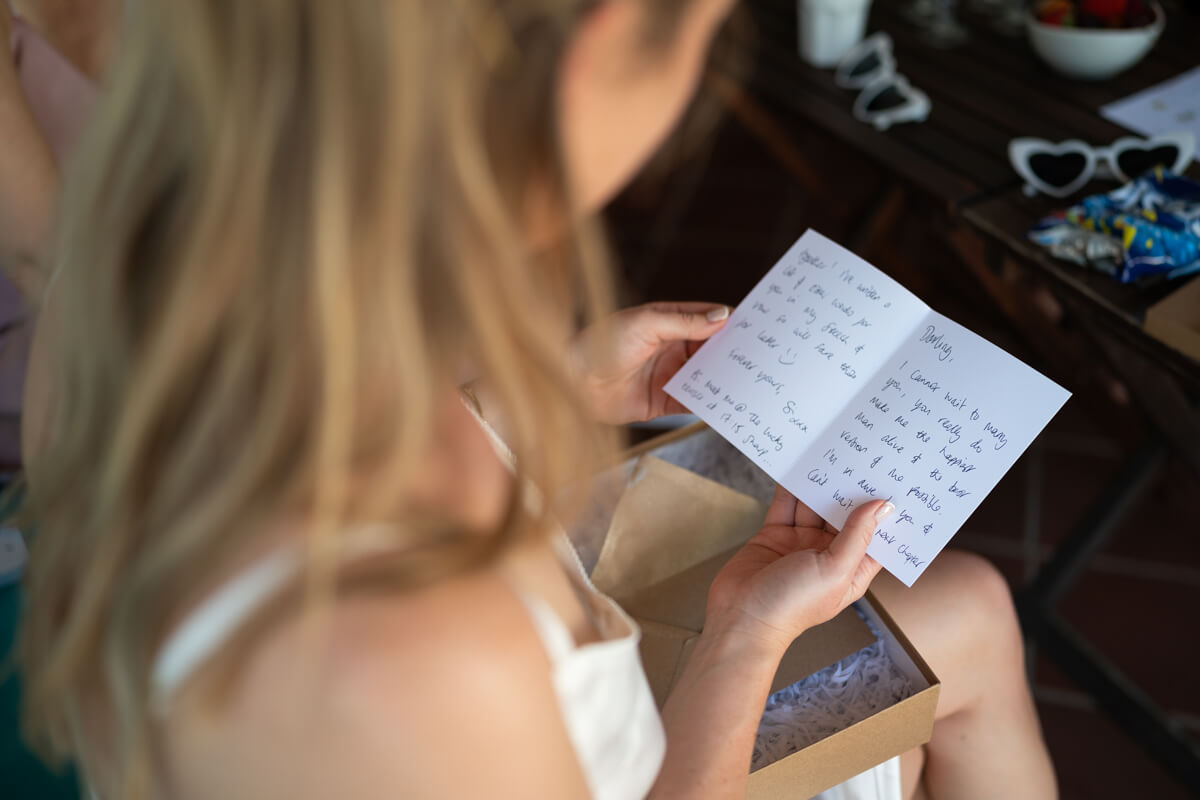 together! I've written a
lot of words for
you in my speech &
vow so will save this
for later :)
Forever yours,
Ps. meet me @ the lucky
at 17.15 sharp...
Darling,
I cannot wait to marry
you, you really do
make me the happiest
man alive & the best
version of me possible.
I'm in awe you &
Can't wait next chapter